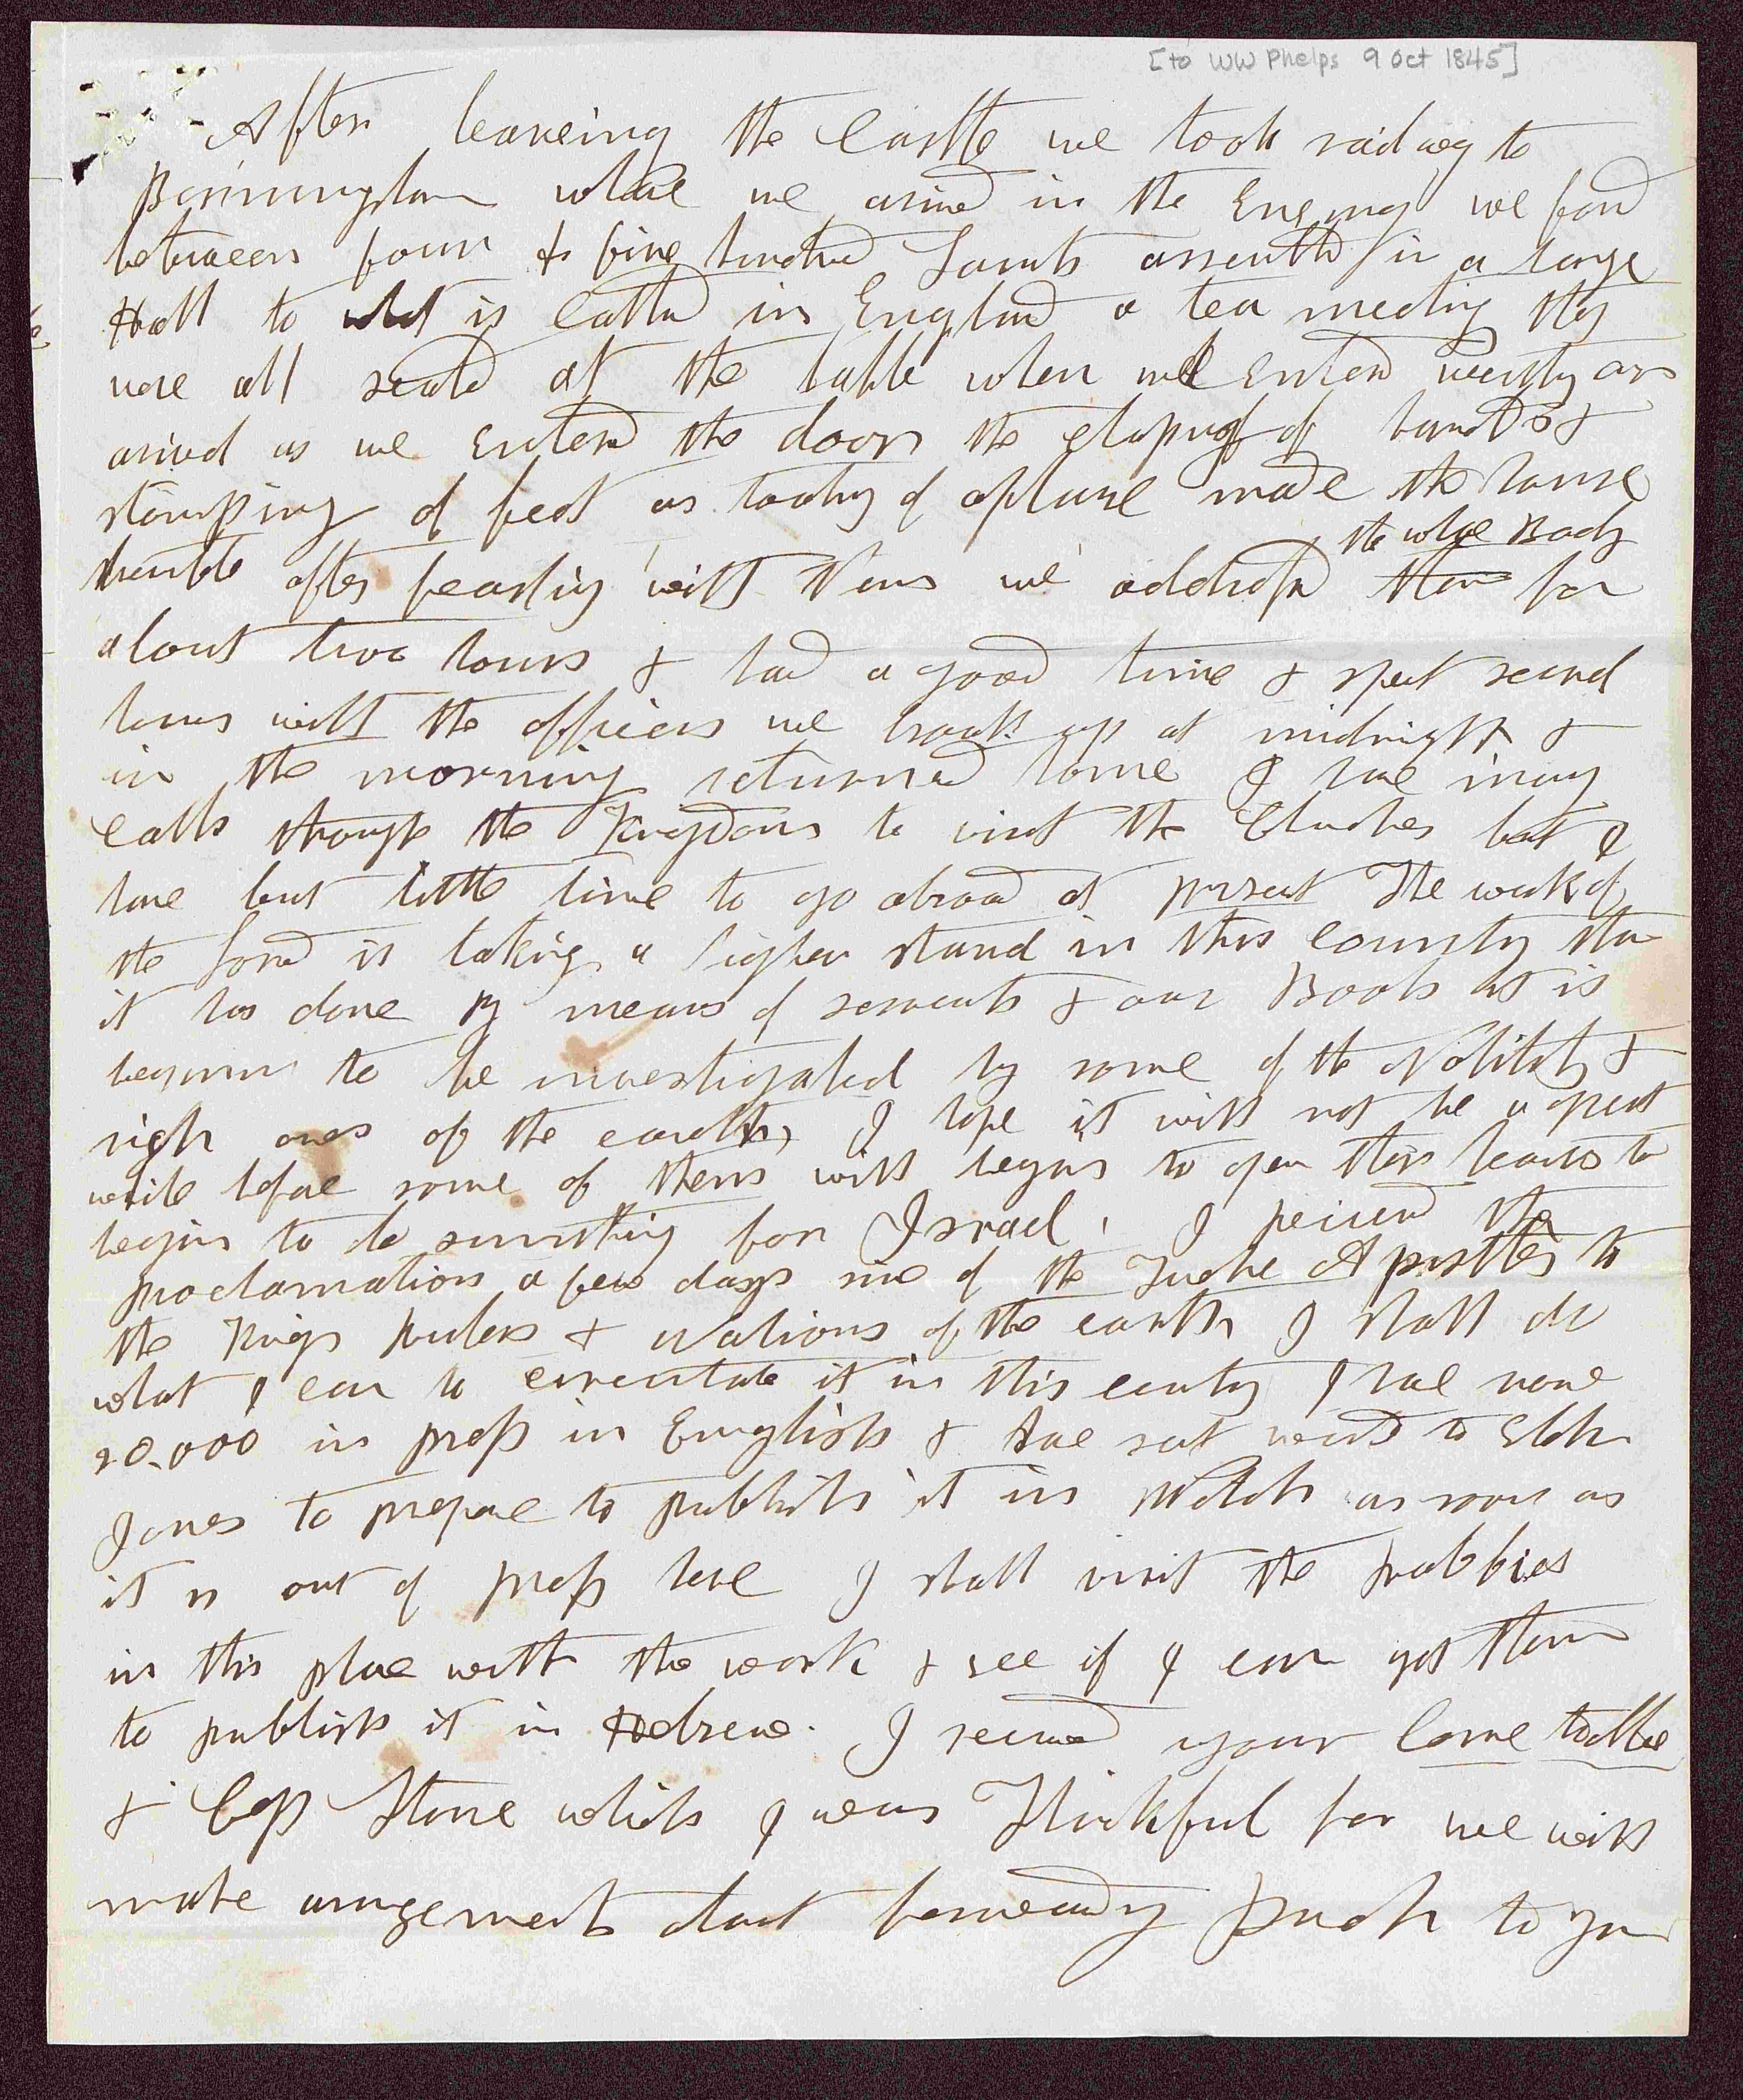 [to WW Phelps 9 Oct 1845]
After leaveing the Castle we took railway to
Birmingham whare we arived in the Evening we found
between four & five hundred Saints assembled in a large
Hall to what is Called in England a tea meeting they
ware all seated at the table when we Entered
arived as we Entered the door the claping of hands &
stamping of feet as tooking of aplause made the house
the whole Body
tremble after feasting with them we addressed them for
about two hours & had a good time & spent several
hours with the officers we broak up at midnight &
in the morning returned home I have many
Calls through the Kingdom to visit the Churches but I
have but little time to go abroad at present The work of
the Lord is taking a higher stand in this country than
it has done By means of servants & our Books it is
begining to be investigated by some of the Nobility &
rich ones of the earth, I hope it will not be a great
while before some of them will begin to open their hearts to
begin to do sumthing for Israel, I received the
proclamation a few days since of the Twelve Apostles to
the Kings Rulers & Nations of the earth I shall do
what I can to circulate it in this country I have now
20.000 in press in English & have sent word to Elder
Jones to prepare to publish it in Welch as soon as
it is out of press here I shall visit the Rabbies
in this place with the work & see if I can get them
to publish it in Hebrew. I received your
& Cap Stone which I was Thinkful for we will
make arangements about forwarding Such to you